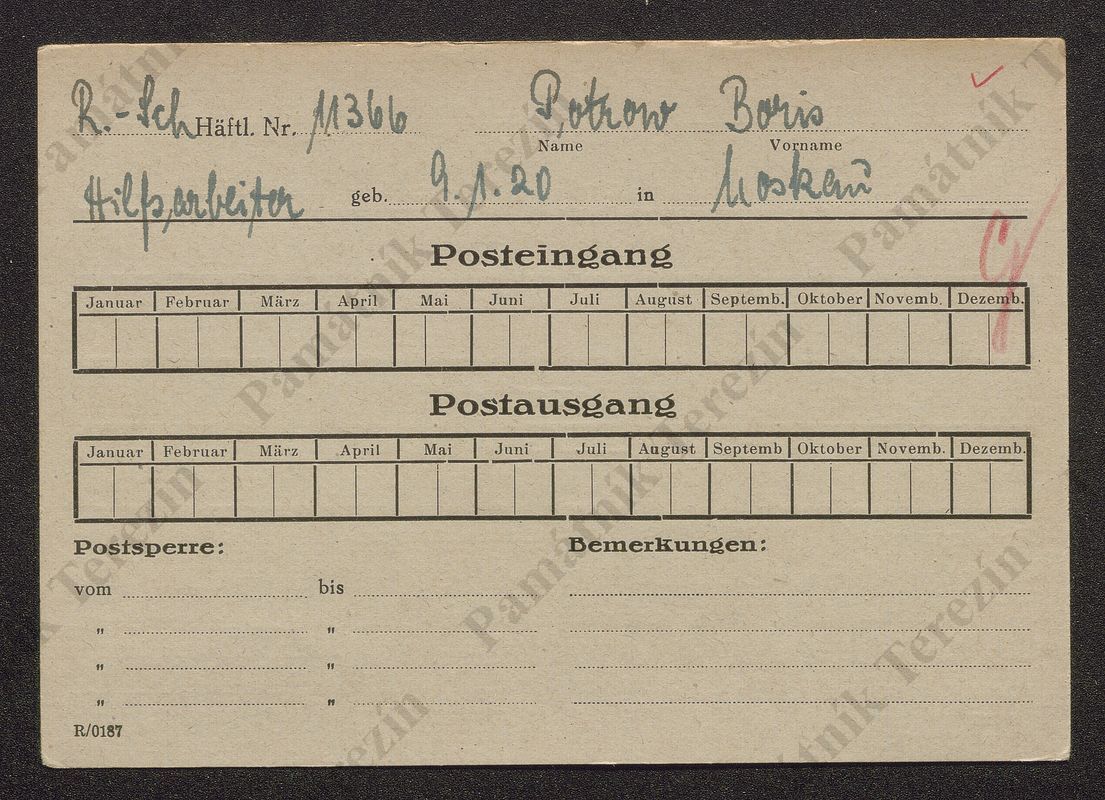 R.-Sch Häftl. Nr. 11366 Potrow Boris
Name Vorname
Hilfsarbeiter geb. 9.1.20 in Moskau
Posteingang
Januar Februar März April Mai Juni Juli August Septemb. Oktober Novemb. Dezemb.
Postausgang
Januar Februar März April Mai Juni Juli August Septemb Oktober Novemb. Dezemb.
Postsperre: Bemerkungen:
vom bis
" "
" "
" "
R/0187
Památník Terezín